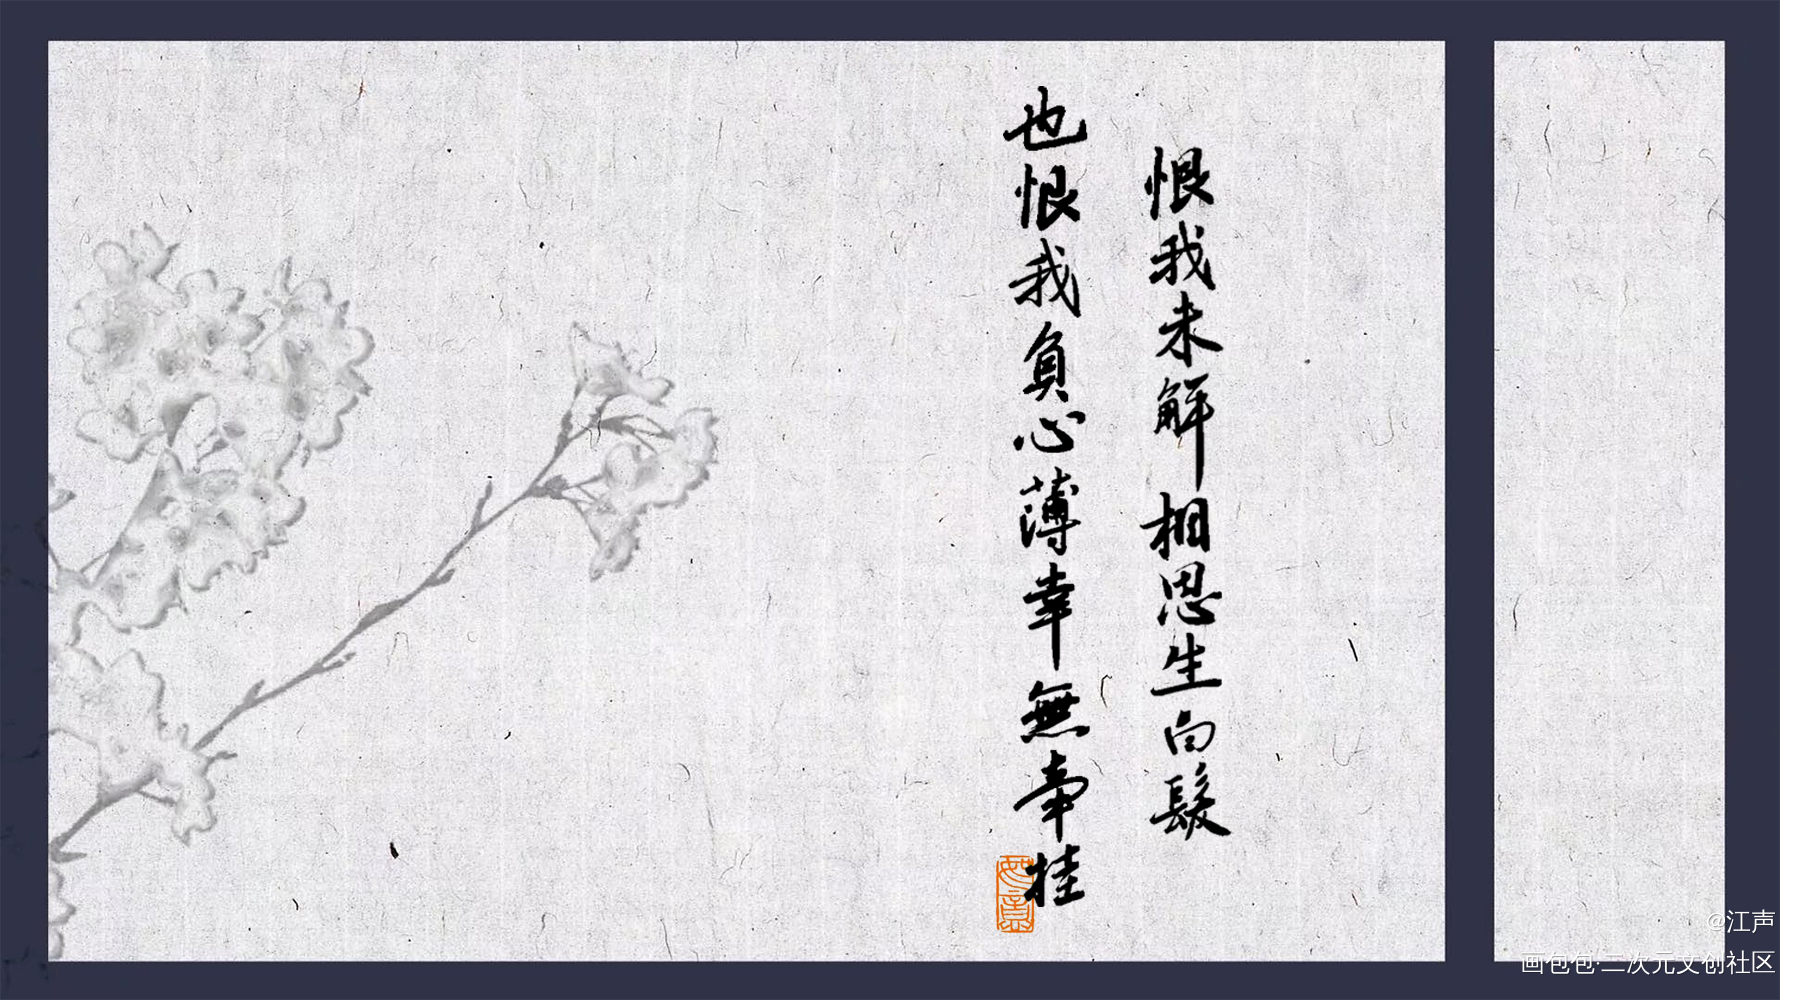 恨我未解相思生白髮
也恨我負心薄幸無牽挂
如意
@江声
画包包·二次元文创社区